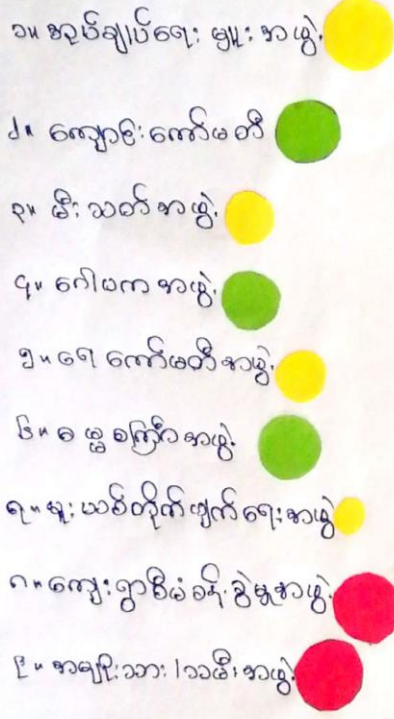 ၁။ အုပ်ချုပ်ရေး မှူး အဖွဲ့
၂။ ကျောင်း ကော်မတီ
၃။ မီး သတ် အဖွဲ့
၄။ ဂေါပက အဖွဲ့
၅။ ရေ ကော်မတီ အဖွဲ့
၆။ ဓမ္မ စကြာ အဖွဲ့
၇။ မူး ယစ်တိုက်ဖျက်ရေး အဖွဲ့
၈။ ကျေး ရွာစီမံခန့် ခွဲမှုအဖွဲ့
၉။ အမျိုးသား / သမီး အဖွဲ့